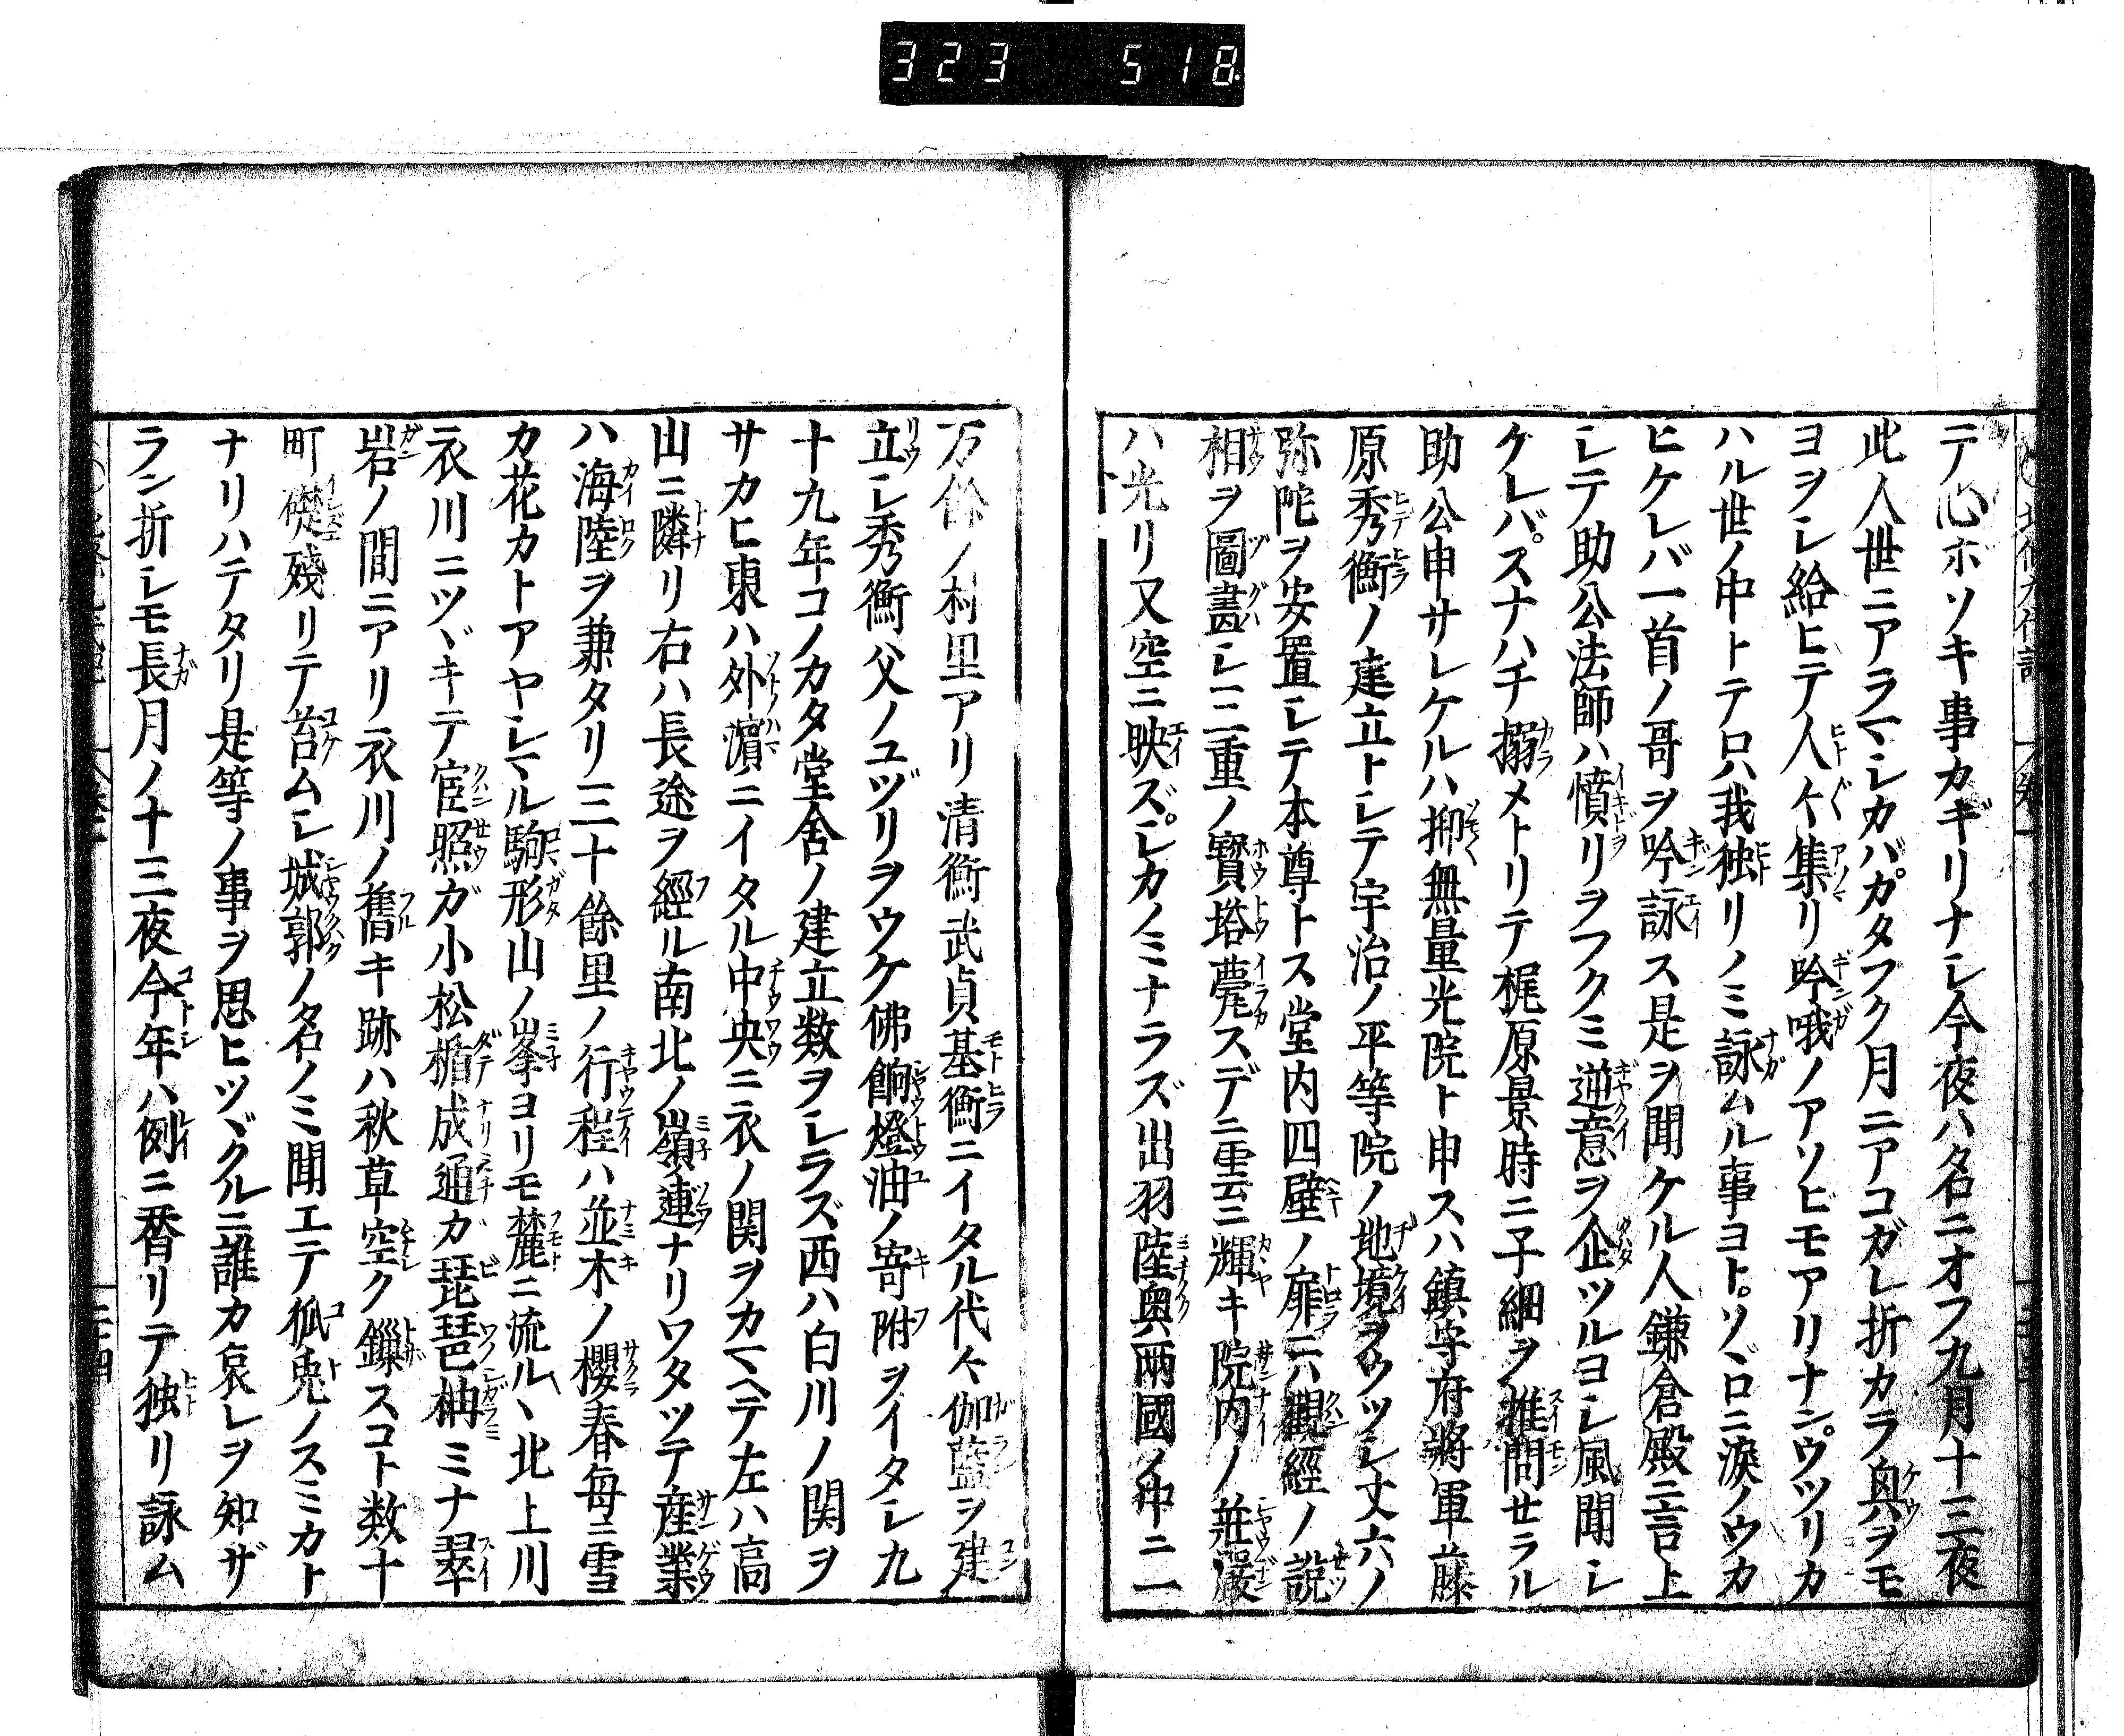 323 518
テ心ボソキ事カギリナシ今夜ハ名ニオフ九月十三夜
此人世ニアラマシカバカタフク月ニアコガレ折カラ興ヲモ
ヨヲシ給ヒテ人々集リ吟哦ノアソビモアリナンウツリカ
ハル世ノ中トテ只我独リノミ詠ムル事ヨトソヾロニ涙ノウカ
ヒケレバ一首ノ哥ヲ吟詠ス是ヲ聞ケル人鎌倉殿ニ言上
シテ助公法師ハ憤リヲフクミ逆意ヲ企ツルヨシ風聞シ
ケレバスナハチ搦メトリテ梶原景時ニ子細ヲ推問セラル
助公申サレケルハ抑無量光院ト申スハ鎮守府將軍藤
原秀衡ノ建立トシテ宇治ノ平等院ノ地境ヲウツシ丈六ノ
弥陀ヲ安置シテ本尊トス堂内四壁ノ扉ニハ觀經ノ說
相ヲ圖畫シ三重ノ寳塔甍スデニ雲ニ輝キ院内ノ莊嚴
ハ光リ又空ニ映ズシカノミナラズ出羽陸奥兩國ノ中ニ一
万餘ノ村里アリ清衡武貞基衡ニイタル代々伽藍ヲ建
立シ秀衡父ノユヅリヲウケ佛餉燈油ノ寄附ヲイタシ九
十九年コノカタ堂舍ノ建立数ヲシラズ西ハ白川ノ関ヲ
サカヒ東ハ外濵ニイタル中央ニ衣ノ関ヲカマヘテ左ハ高
山ニ隣リ右ハ長途ヲ經ル南北ノ嶺連ナリワタツテ産業
ハ海陸ヲ兼タリ三十餘里ノ行程ハ並木ノ櫻春毎ニ雪
カ花カトアヤシマル駒形山ノ峯ヨリモ麓ニ流ルヽ北上川
衣川ニツヾキテ宦照ガ小松楯成通ガ琵琶柵ミナ翠
岩ノ間ニアリ衣川ノ舊キ跡ハ秋草空ク鏁スコト数十
町礎殘リテ苔ムシ城郭ノ名ノミ聞エテ狐兎ノスミカト
ナリハテタリ是等ノ事ヲ思ヒツヾクルニ誰カ哀レヲ知ザ
ラン折シモ長月ノ十三夜今年ハ例ニ替リテ独リ詠ム